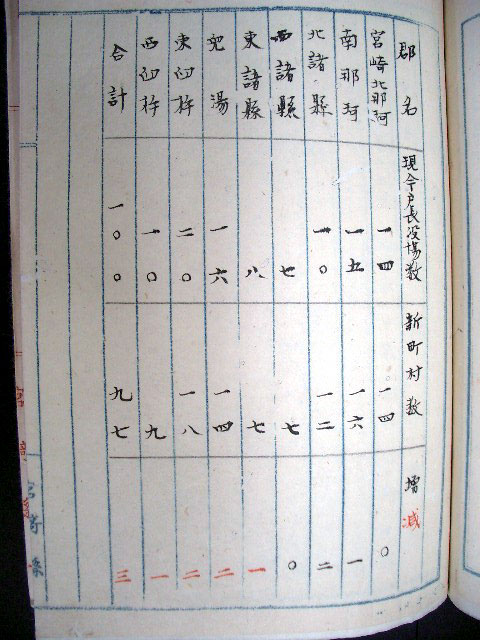 郡名 現今戸長役場数 新町村数 増減
宮崎北那珂 一四 一四 〇
南那珂 一五 一六 一
北諸縣 一〇 一二 二
西諸縣 七 七 〇
東諸縣 八 七 一
兒湯 一六 一四 二
東臼杵 二〇 一八 二
西臼杵 一〇 九 一
合計 一〇〇 九七 三
宮崎縣